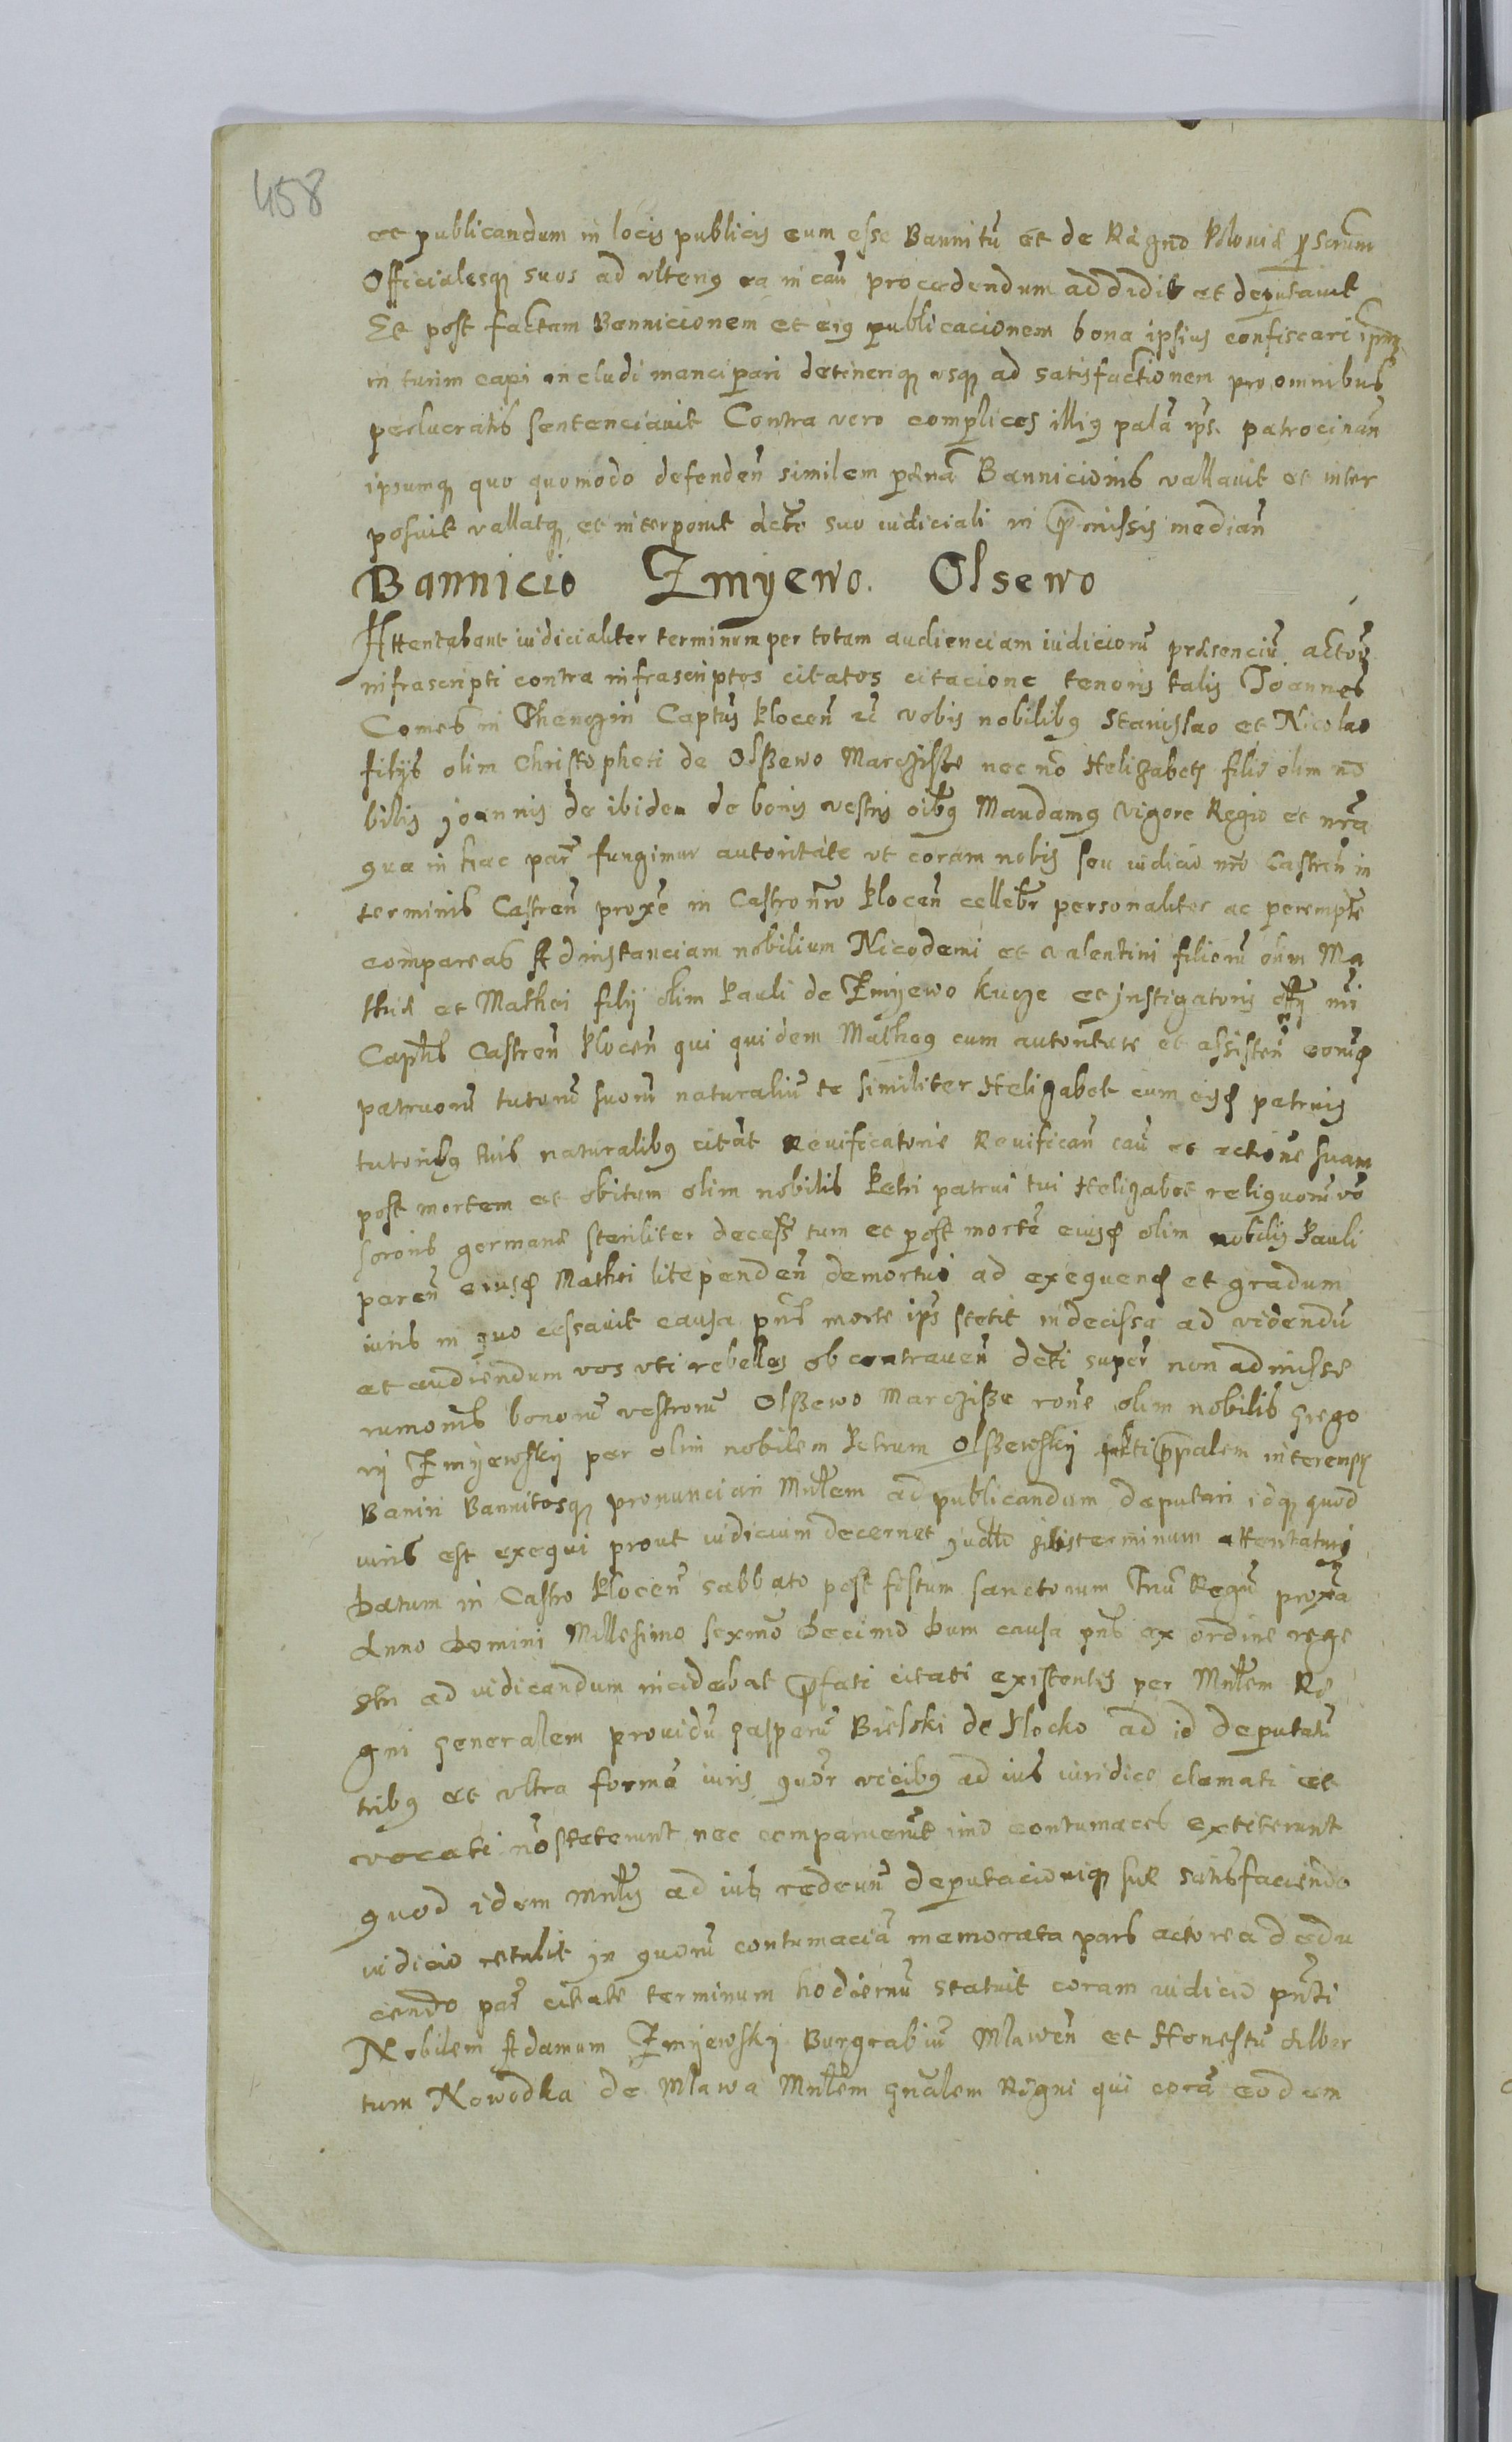 458
et publicandum in locis publicis eum esse Bannitu et de Regno Poloniæ
Officialesq suos ad vlteriq ea in cau procedendum addidit et deputauit
Et post factam Bannicionem et eiq publicacionem bona ipsius confiscari ipmq
in turim capi includi mancipari detineriq vsq ad satisfactionem pro omnibus
perlucratis sentenciauit Contra vero complices illiq pala ips patrocinan
ipsumq quo quomodo defenden similem pœna Bannicionis vallauit et inter
posuit vallatq et interponit dcto suo iudiciali in præmissis median
Bannicio Zmyewo. Olsewo
Attentabant iudicialiter terminum per totam audienciam iudicioru præsenciu actores
infrascripti contra infrascriptos citatos citacione tenoris talis Joannes
Comes in Thenczin Captus Plocen ec vobis nobilibq Stanislao et Nicolao
filijs olim Christopheri de Olßewo Marcziße nec no Helizabeth filiæ olim no
bilis Joannis de ibidem de bonis vestris oibq Mandamq vigore Regio et nra
qua in hac par fungimur autoritate vt coram nobis seu iudicio nro Castren in
terminis Castren proxe in Castro nro Plocen cellebr personaliter ac perempte
compareas Ad instanciam nobilium Nicodemi et Valentini filioru olim Ma
thiæ et Mathei filij olim Pauli de Zmyewo Kucze et Jnstigatoris offy nri
Captlis Castren Plocen qui quidem Matheq cum autoritate et assisten eorude
patruoru tutoru suoru naturaliu te similiter Helizabet cum eisd patruis
tutoribq tuis naturalibq citat Reuificatorie Reuifican cau et actione suam
post mortem et obitum olim nobilis Petri patrui tui Helizabet reliquoru vo
sororis germanæ steriliter decess tum et post morte eiusd olim nobilis Pauli
paren eiusd Mathei lite penden demortui ad exequend et gradum
iuris in quo cessauit causa pns morte ips stetit indecissa ad videndu
et audiendum vos vti rebelles ob contrauen decti super non admisse
rumonis bonoru vestroru Olßewo Marcziße rone olim nobilis Grego
rij Zmyewskij per olim nobilem Petrum Olßewskij interempt
Baniri Bannitosq pronunciari Mnlem ad publicandum deputari idq quod
iuris est exequi prout iudicium decernet terminum attentaturi
Datum in Castro Plocen sabbato post festum sanctorum Triu Regu proxa
Anno Domini Millesimo sexmo Decimo Dum causa pns ex ordine rege
stri ad iudicandum incidebat præfati citati existentes per Mnlem Re
gni Generalem prouidu Gasperu Bielski de Plocko ad id deputatu
tribq et vltra forma iuris quor vicibq ad ius iuridice clamati et
vocati no steterunt nec comparuerut imo contumaces extiterunt
quod idem Mnlis ad ius redeun deputacioniq suæ satisfaciendo
iudicio retulit in quoru contumacia memorata pars actorea dedu
cendo par citatæ terminum hodiernu statuit coram iudicio pnti
Nobilem Adamum Zmyewskj Burgrabiu Mlawen et Honestu Alber
tum Nowodka de Mlawa Mnlem Gnalem Regni qui cora eodem